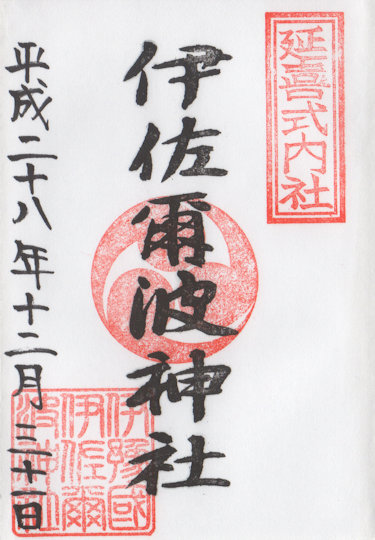 延喜式内社
伊佐爾波神社
伊豫國
伊佐爾
波神社
平成二十八年十二月三十一日